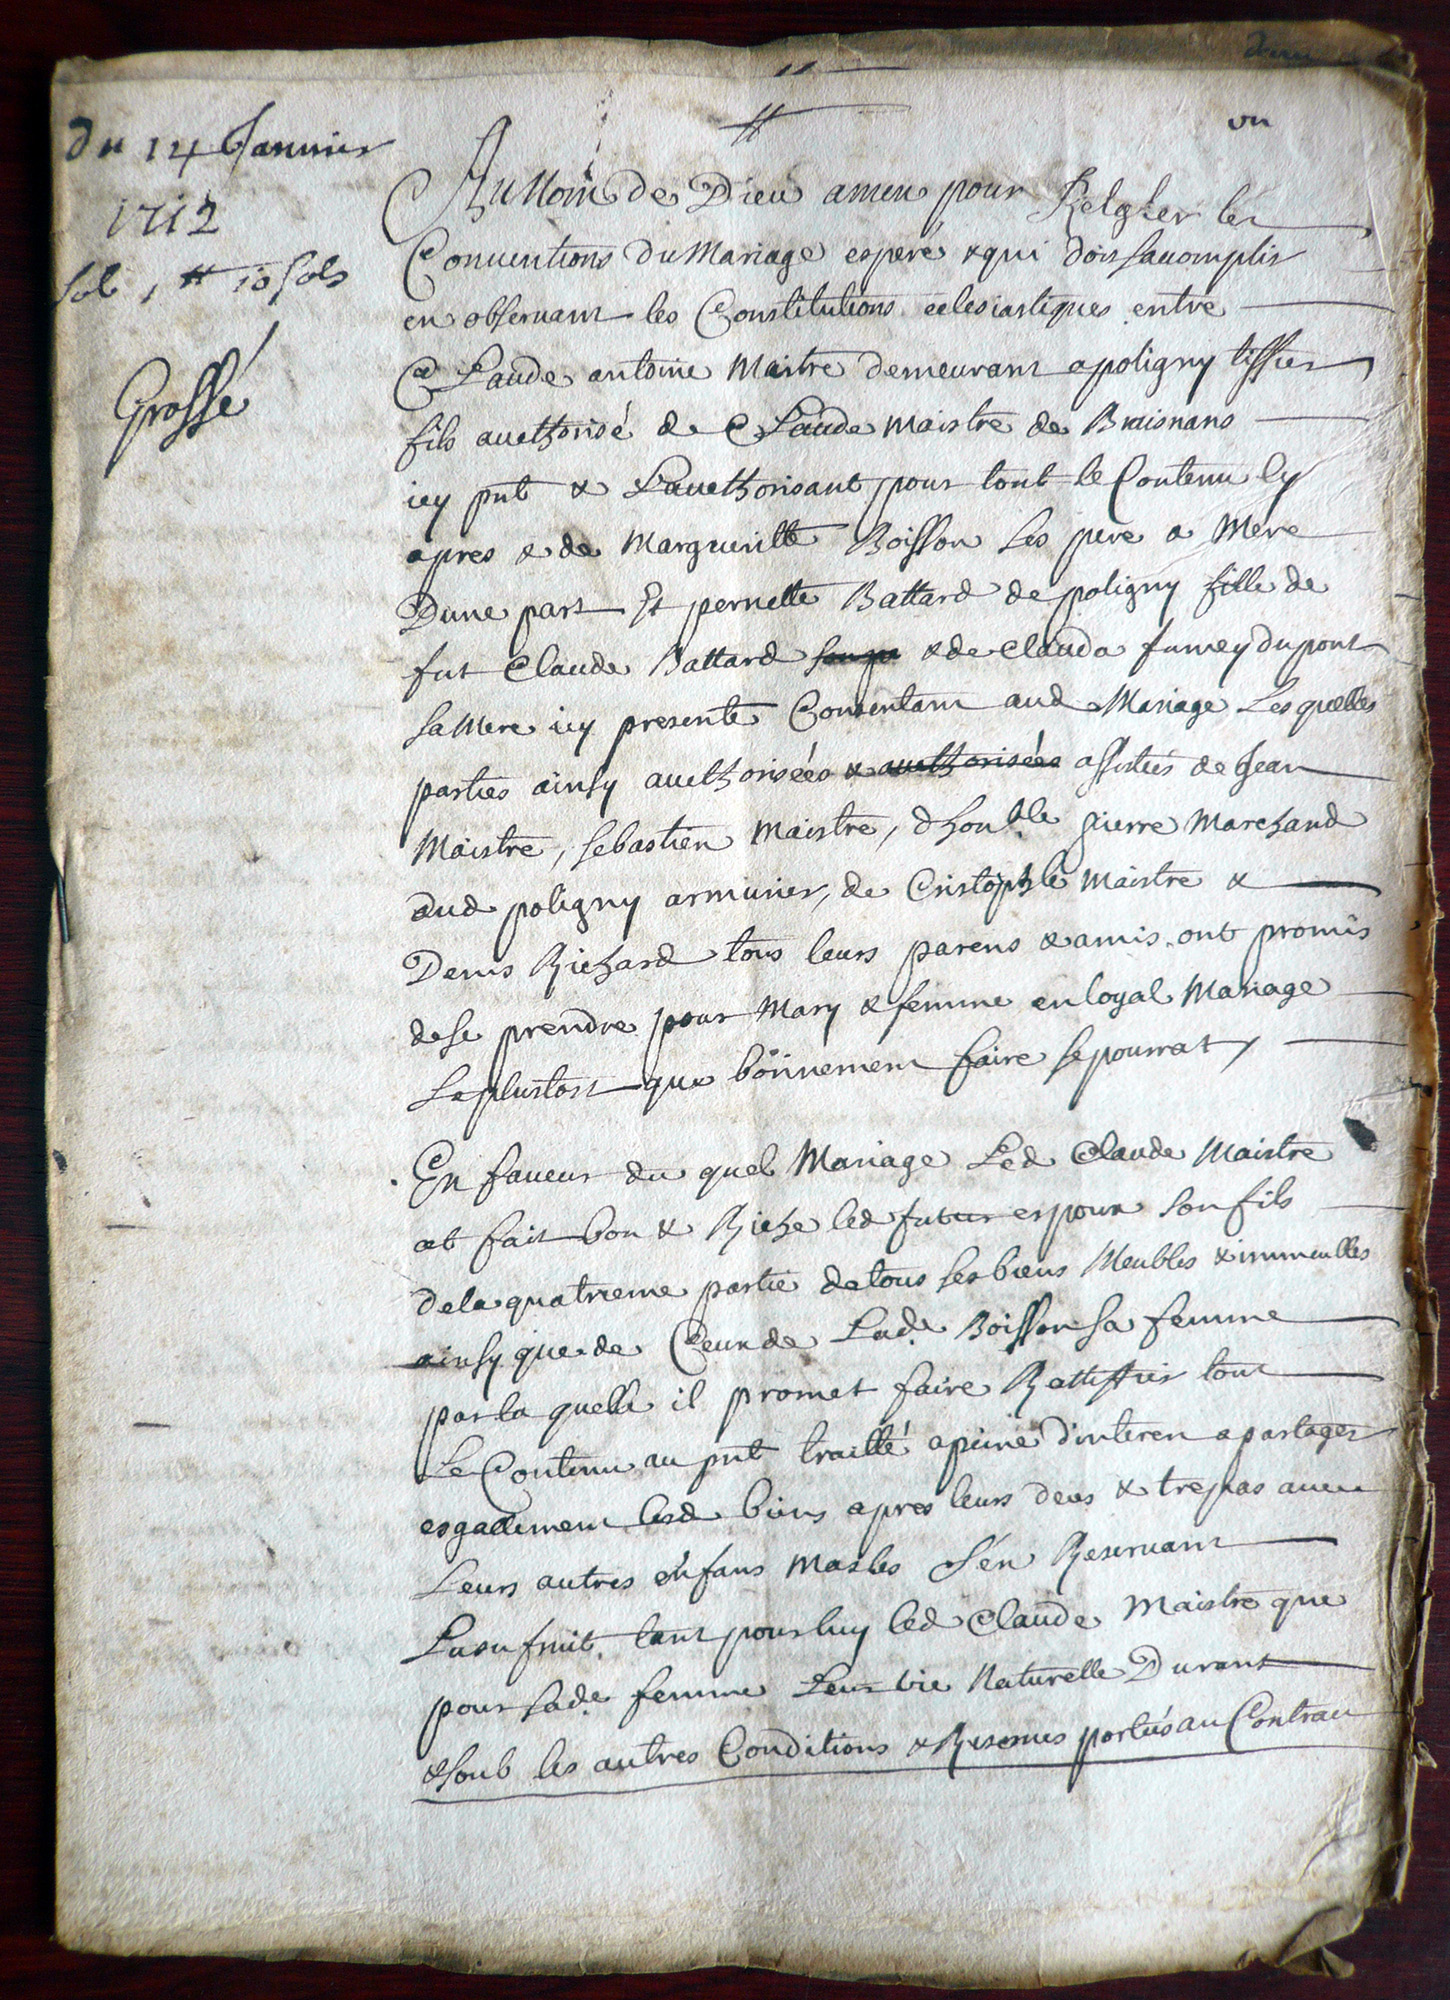 un
du 14 Janvier
1712
sol 1 ₶ 10 sols
Grossé
Au Nom de Dieu amen pour Regler les
Conventions du Mariage esperé & qui doit saccomplir
en observant les Constitutions eclesiastiques entre
Claude antoine Maitre demeurant a poligny tissier
fils aucthorisé de Claude Maistre de Braisnans
icy pnt & Laucthorisant pour tout le Contenu cy
apres & de Margueritte Boisson ses pere & Mere
Dune part Et pernette Battard de poligny fille de
fut Claude Battard & de Clauda fumey dupont
sa Mere icy presente Consentant aud Mariage Lesquelles
parties ainsy aucthorisées & aucthorisées assistées de Jean
Maistre, sebastien Maistre, dhon.ble pierre Marchand
dud poligny armurier, de Cristophle Maistre &
Denis Richard tous leurs parens & amis ont promis
de se prendre pour Mary & femme en loyal Mariage
Le plustost que bonnement faire se pourrat
En faveur du quel Mariage Led Claude Maistre
at fait bon & Riche led futur espoux son fils
de la quatrieme partie de tous ses biens Meubles & immeubles
ainsy que de Ceux de Lad.e Boisson sa femme
par la quelle il promet faire Rattiffier tout
Le Contenu au pnt traitté a peine d'interest a partager
esgallement lesd biens apres leurs deces & trepas avec
Leurs autres enfans Masles s'en Reservant
Lusufruit tant pour luy led Claude Maistre que
pour sad.e femme Leur vie Naturelle Durant
& soub les autres Conditions & Reserves portées au Contract